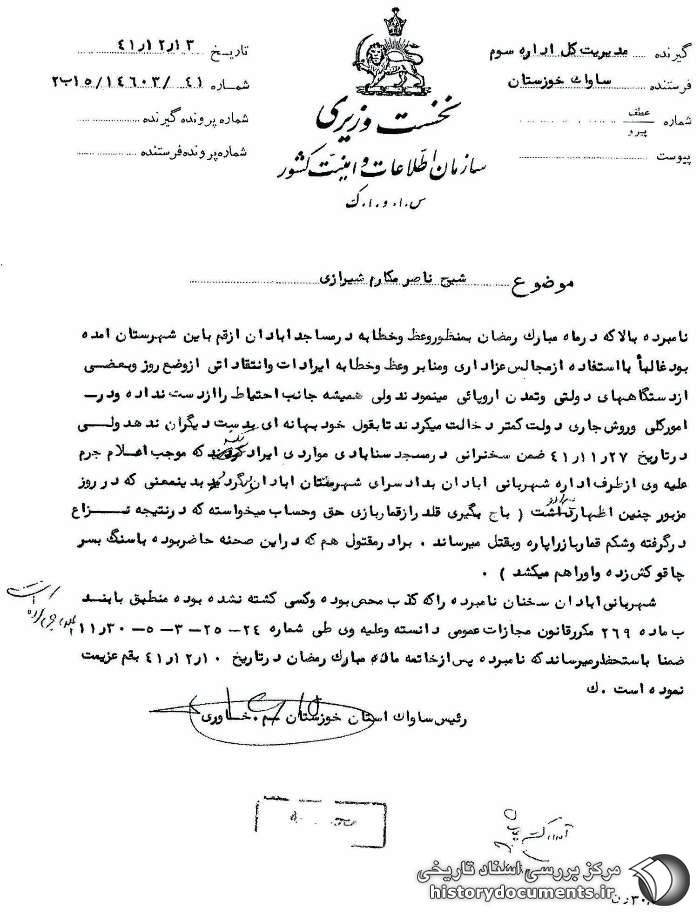 گیرنده مدیریت کل اداره سوم
فرستنده ساواك خوزستان
شماره عطف پیرو
پیوست
نخست وزیری
سازمان اطلاعات و امنیت کشور
س . ا . و . ا . ك
تاریخ ۴۱/۱۲/۱۳
شماره ۲ب۱۵/۱۴۶۰۳/ ۴۱
شماره پرونده گیرنده
شماره پرونده فرستنده
موضوع شیخ ناصر مکارم شیرازی
نامبرده بالا که در ماه مبارك رمضان بمنظور وعظ و خطابه در مساجد ابادان از قم باین شهرستان امده
بود غالباً با استفاده از مجالس عزاداری و منابر وعظ و خطابه ایرادات و انتقاداتی از وضع روز و بعضی
از دستگاههای دولتی و تمدن اروپائی مینمودند ولی همیشه جانب احتیاط را از دست نداده و در –
امور کلی و روش جاری دولت کمتر دخالت میکردند تا بقول خود بهانه ای بدست دیگران ندهد ولی
در تاریخ ۴۱/۱۱/۲۷ ضمن سخنرانی در مسجد سنابادی مواردی ایراد که موجب اعلام جرم
علیه وی از طرف اداره شهربانی ابادان بدادسرای شهرستان ابادان بدینمعنی که در روز
مزبور چنین اظهار ( باج بگیری قلدر از قمار بازی حق و حساب میخواسته که در نتیجه نزاع
در گرفته و شکم قمارباز را پاره و بقتل میرساند . برادر مقتول هم که در این صحنه حاضر بوده با سنگ بسر
چاقو کش زده و او را هم میکشد ) .
شهربانی ابادان سخنان نامبرده را که کذب محض بوده و کسی کشته نشده بوده منطبق با بند
ب ماده ۲۶۹ مکرر قانون مجازات عمومی دانسته و علیه وی طی شماره ۲۴–۲۵–۳–۵–۳۰/۱۱
ضمنا باستحضار میرساند که نامبرده پس از خاتمه ماه مبارك رمضان در تاریخ ۴۱/۱۲/۱۰ بقم عزیمت
نموده است . ك
رئیس ساواك استان خوزستان م . خاوری
مرکز بررسی اسناد تاریخی
historydocuments.ir